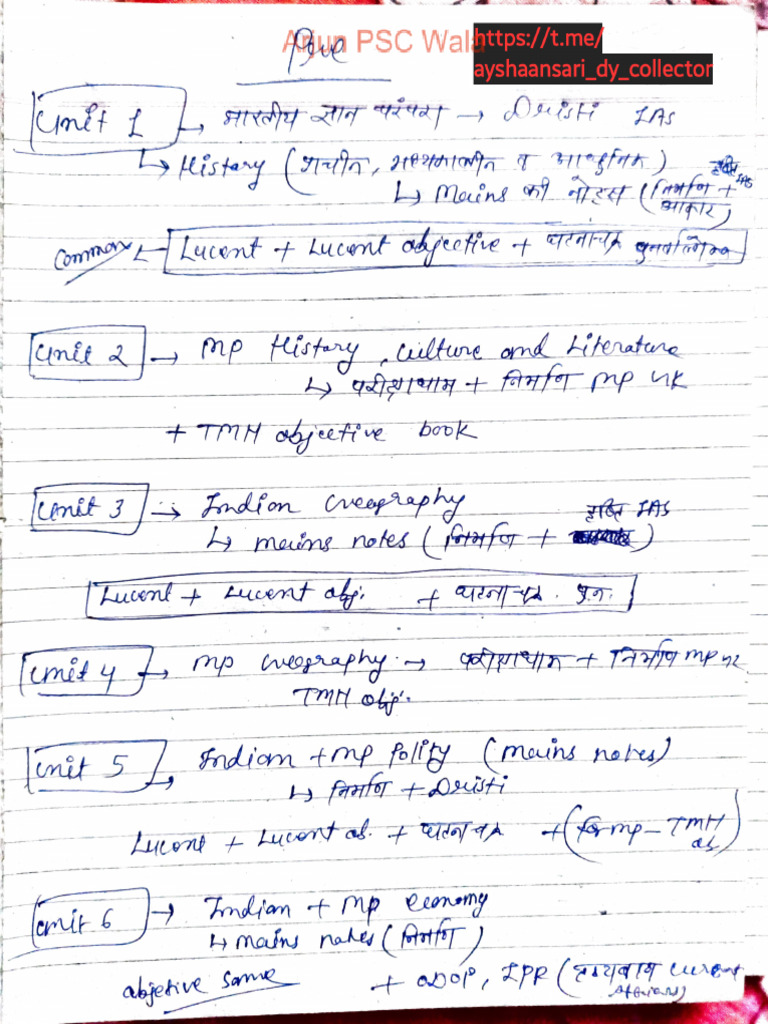 Arjun PSC Wala
https://t.me/
ayshaansari_dy_collector
Pre
Unit 1 → भारतीय ज्ञान परंपरा → Dristi IAS
↳ History (प्राचीन, मध्यकालीन व आधुनिक)
↳ Mains की नोट्स (निर्माण + आकार) दृष्टि IAS
Common Lucent + Lucent objective + घटनाचक्र पुनरावलोकन
Unit 2 → MP History, Culture and Literature
↳ परीक्षाधाम + निर्माण MP GK
+ TMH objective book
Unit 3 → Indian Geography
↳ mains notes (निर्माण + दृष्टि IAS)
Lucent + Lucent obj. + घटनाचक्र पु.न.
Unit 4 → MP Geography → परीक्षाधाम + निर्माण MP
TMH obj.
Unit 5 → Indian + MP Polity (mains notes)
↳ निर्माण + Dristi
Lucent + Lucent ob. + घटनाचक्र + (for mp - TMH ob)
Unit 6 → Indian + MP economy
↳ mains notes (निर्माण)
objetive same + ODOP, IPR (current affairs)